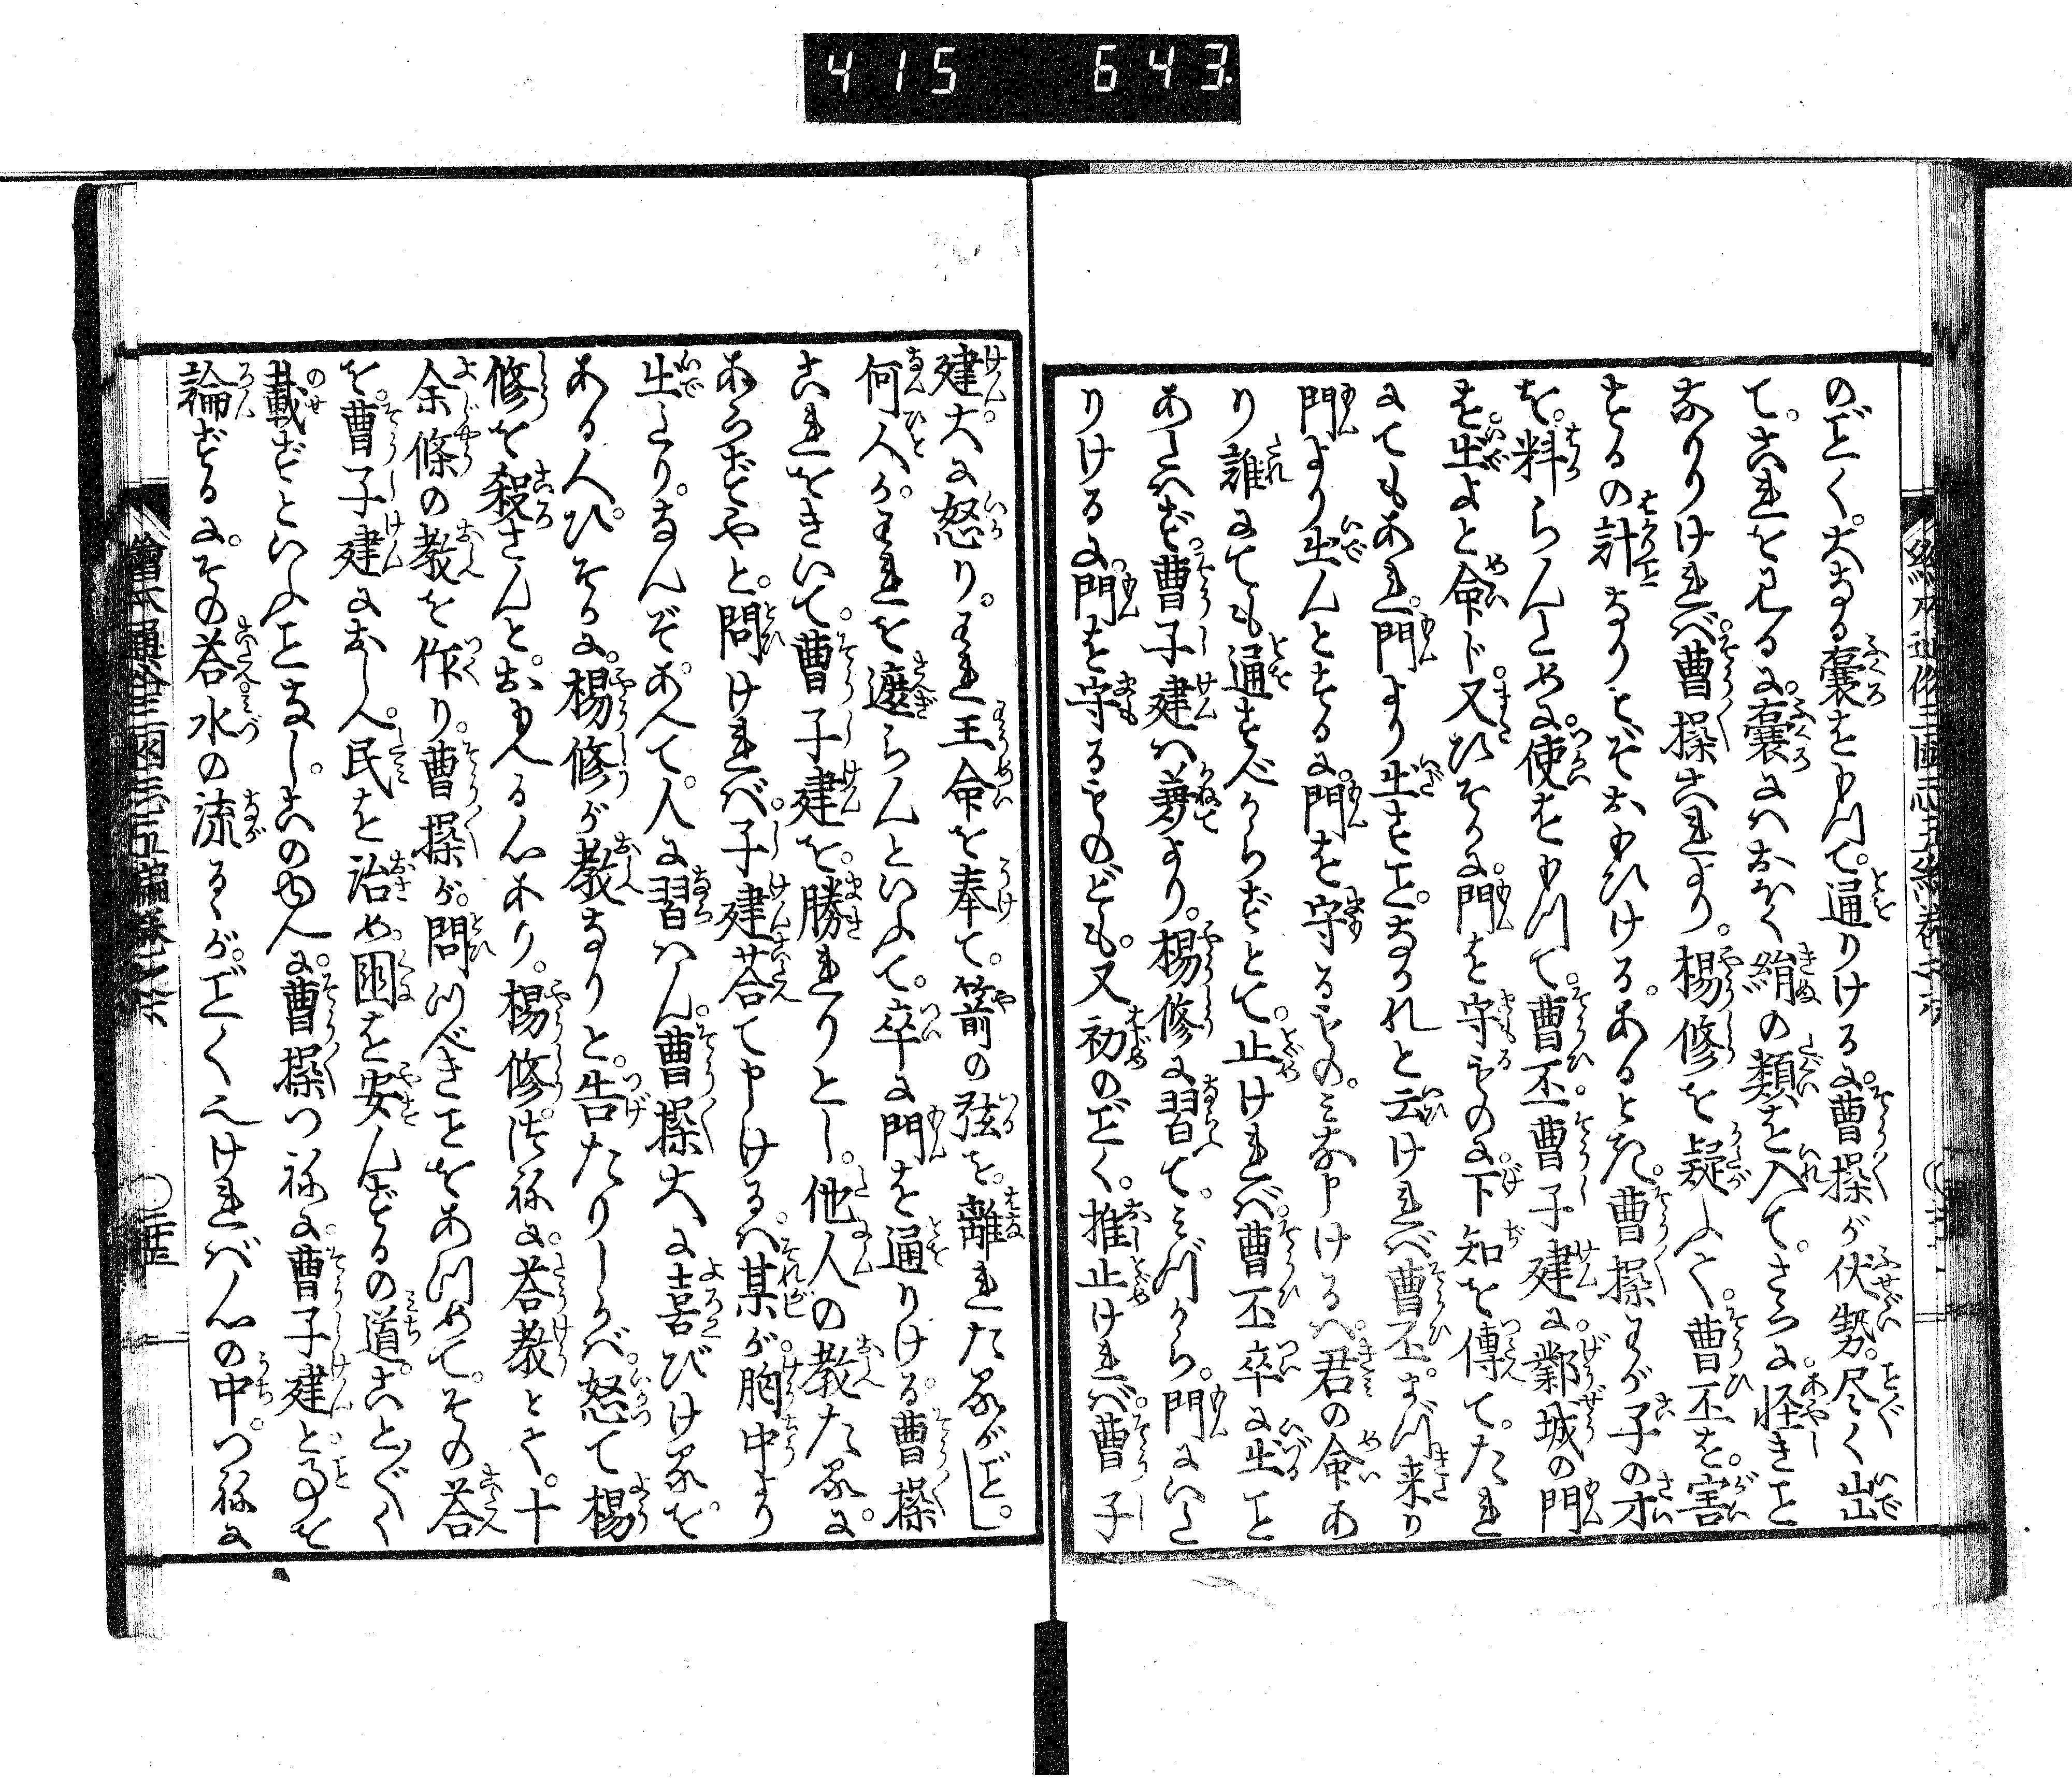 415 643
のごとく。大なる嚢をもつて。通りける に。曹操が伏勢。尽く出
て。これを見るに。嚢にハおほく絹の類を入て。さらに。怪きこと
なかりければ。曹操これより。楊修を疑ふて。曹丕を。害
するの計なりとぞおもひける。あるとき。曹操わが子の才
を。料らんために。使をもつて。曹丕。曹子建に。鄴城の門
を。出よと命ド。又ひそかに。門を守るものに。下知を傳て。たれ
にてもあれ。門より出すこと。なかれと云ければ。曹丕。まづ来り
門より出んとするに。門を守るもの。ミな申けるハ。君の命あ
り誰にても通すべからずとて。止ければ。曹丕卒に出こと
あたハず。曹子建ハ兼てより。楊修に習て。ミづから。門にいた
りけるに。門を守るものども。又初のごとく。推止ければ。曹子
建大に怒り。われ王命を奉て。箭の弦を。離れたるがごとし。
何人か。われを遮らんといふて。卒に門を通りける。曹操
これをきいて。曹子建を。勝れりとし。他人の教たるに。
あらずやと。問ければ。子建荅て申けるハ。某が。胸中より
出たり。なんぞ。あへて。人に習ハん。曹操大に喜びけるを。
ある人ひそかに。楊修が教なりと。告たりしかば。怒て楊
修を殺さんと。おもへる心あり。楊修つねに。荅教とて。十
余條の教を作り。曹操が。問つべきことをあつめて。その荅
を。曹子建におしへ。民を治め。国を安んずるの道。ことごとく
載ずといふことなし。このゆへに。曹操つねに。曹子建と。事を
論ずるに。その荅水の流るゝが。ごとくなりければ。心の中。つねに
繪本通俗三国志五編巻之六